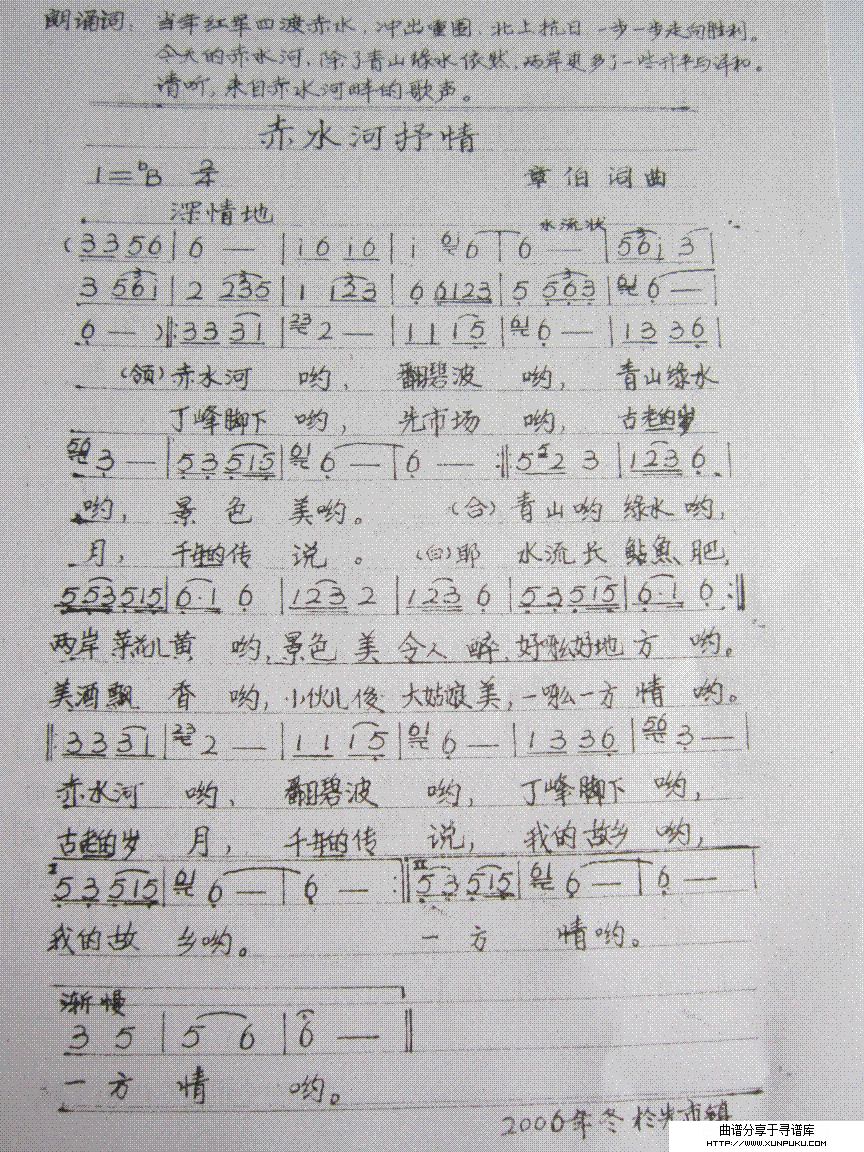 朗诵词：当年红军四渡赤水，冲出重围，北上抗日一步一步走向胜利。
今天的赤水河，除了青山绿水依然，两岸更多了一些升平与详和。
请听，来自赤水河畔的歌声。
赤水河抒情
1=ᵇB 2/4 章伯词曲
深情地
水流状
(3 3 5 6 | 6 — | i 6 i 6 | i 6i 6 | 6 — | 5 6 i 3 |
3 5 6 i | 2 2 3 5 | 1 1 2 3 | 6 6 1 2 3 | 5 5 6 3 | 61 6 — |
6 — ) ‖: 3 3 3 1 | 23 2 — | 1 1 1 5 | 61 6 — | 1 3 3 6 |
(领)赤水河 哟， 翻碧波 哟， 青山绿水
丁峰脚下 哟， 先市场 哟， 古老的岁
56 3 — | 5 3 5 1 5 | 61 6 — | 6 — :‖ 5 5 2 3 | 1 2 3 6 |
哟， 景色 美哟。 (合)青山哟 绿水哟，
月， 千年的传 说。 耶 水流长 鲇魚肥，
5 5 3 5 1 5 | 6·1 6 | 1 2 3 2 | 1 2 3 6 | 5 3 5 1 5 | 6·1 6 :‖
两岸菜花儿黄 哟，景色美 令人醉，好呀么好地方 哟。
美酒飘香 哟，小伙儿俊 大姑娘美，一呀么一方情 哟。
‖: 3 3 3 1 | 23 2 — | 1 1 1 5 | 61 6 — | 1 3 3 6 | 56 3 — |
赤水河 哟， 翻碧波 哟， 丁峰脚下 哟，
古老的岁 月， 千年的传 说， 我的故乡 哟，
I 5 3 5 1 5 | 61 6 — | 6 — :‖ II 5 3 5 1 5 | 61 6 — | 6 — |
我的故 乡哟。 一方 情哟。
渐慢
3 5 | 5 6 | 6 — ‖
一方 情 哟。
2006年冬于先市镇
曲谱分享于寻谱库
HTTP://WWW.XUNPUKU.COM